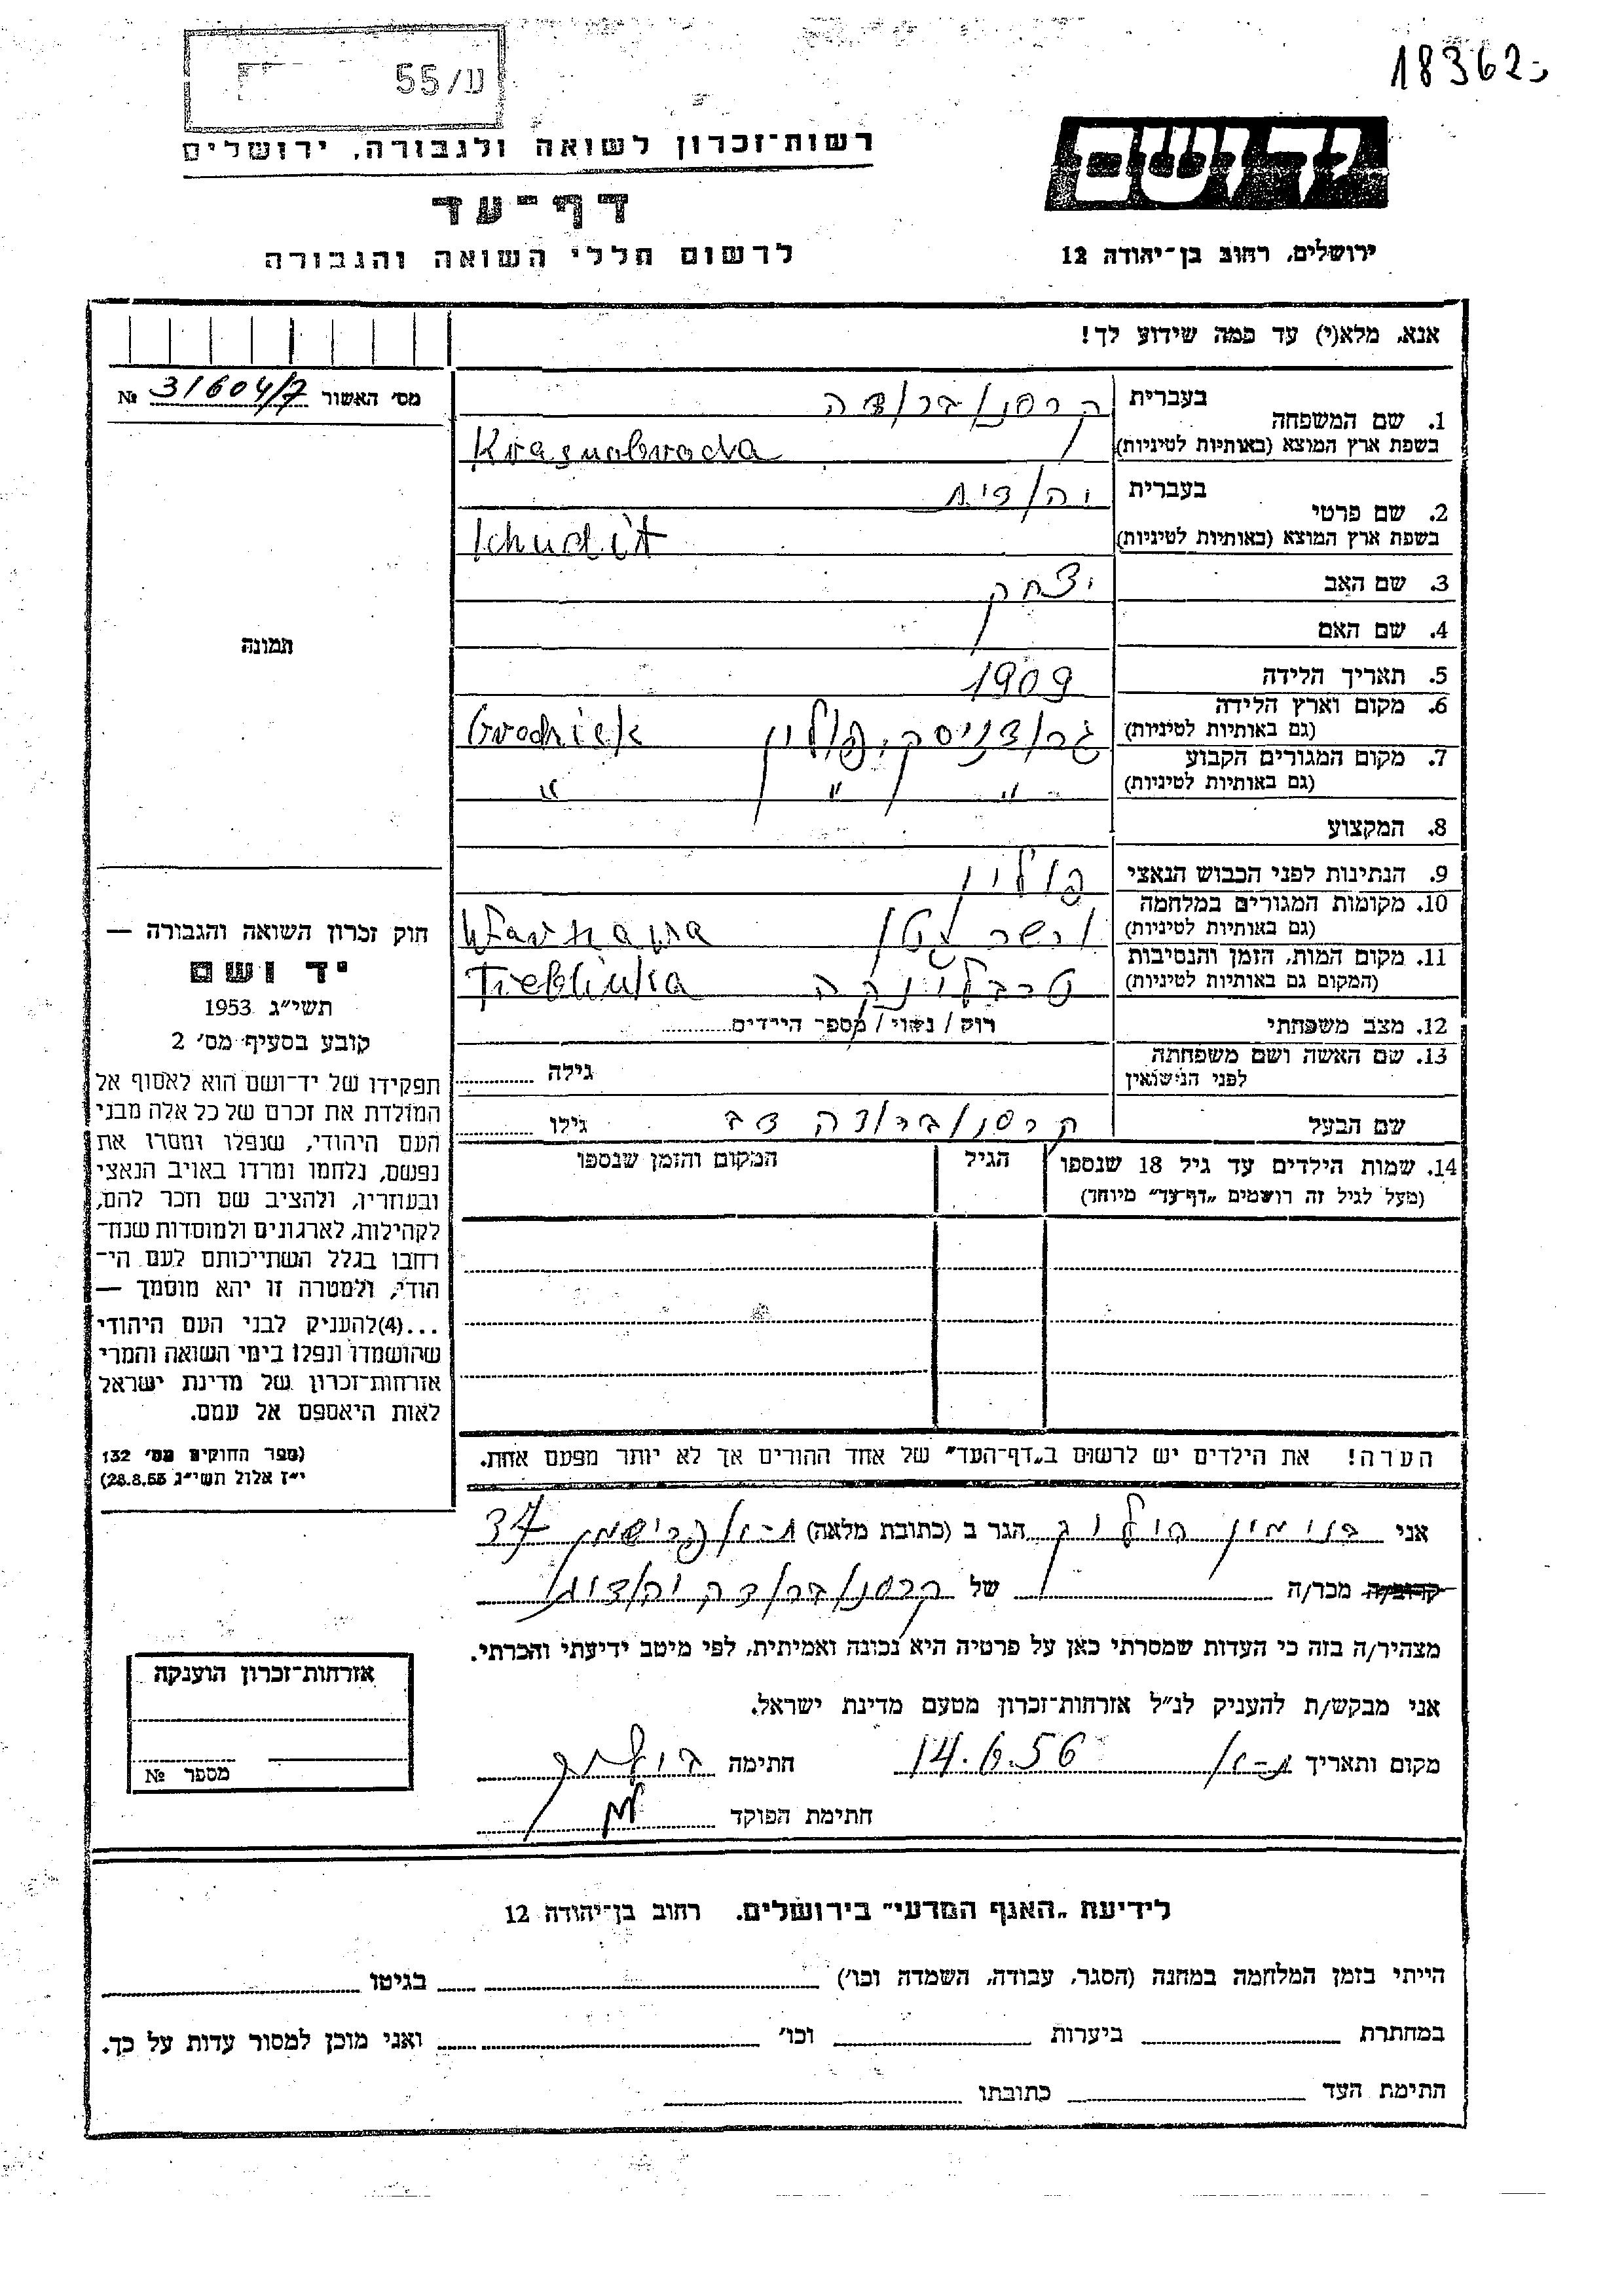 18362
ע/55
רשות־זכרון לשואה ולגבורה, ירושלים
דף־עד
לרשום חללי השואה והגבורה
יד ושם
ירושלים, רחוב בן־יהודה 12
אנא, מלא(י) עד כמה שידוע לך!
מס׳ האשור 31604/7 №
1. שם המשפחה
בעברית קרסנוברודה
בשפת ארץ המוצא (באותיות לטיניות) Krasnobroda
2. שם פרטי
בעברית יהודית
בשפת ארץ המוצא (באותיות לטיניות) Ichudit
3. שם האב יצחק
4. שם האם
5. תאריך הלידה 1909
6. מקום וארץ הלידה
(גם באותיות לטיניות) גרודזיסק, פולין Grodzisk
7. מקום המגורים הקבוע
(גם באותיות לטיניות) " " "
8. המקצוע
9. הנתינות לפני הכבוש הנאצי פולין
10. מקומות המגורים במלחמה
(גם באותיות לטיניות) Warszawa
11. מקום המות, הזמן והנסיבות
(המקום גם באותיות לטיניות) טרבלינקה Treblinka
12. מצב משפחתי רוק / נשוי / מספר הילדים
13. שם האשה ושם משפחתה
לפני הנישואין גילה
שם הבעל קרסנוברודה צבי גילו
14. שמות הילדים עד גיל 18 שנספו הגיל המקום והזמן שנספו
(מעל לגיל זה רושמים „דף־עד" מיוחד)
הערה! את הילדים יש לרשום ב„דף־העד" של אחד ההורים אך לא יותר מפעם אחת.
תמונה
חוק זכרון השואה והגבורה —
יד ושם
תשי״ג 1953
קובע בסעיף מס׳ 2
תפקידו של יד־ושם הוא לאסוף אל
המולדת את זכרם של כל אלה מבני
העם היהודי, שנפלו ומסרו את
נפשם, נלחמו ומרדו באויב הנאצי
ובעוזריו, ולהציב שם וזכר להם,
לקהילות, לארגונים ולמוסדות שנח־
רחבו בגלל השתייכותם לעם הי־
הודי, ולמטרה זו יהא מוסמך —
...(4)להעניק לבני העם היהודי
שהושמדו ונפלו בימי השואה והמרי
אזרחות־זכרון של מדינת ישראל
לאות היאספם אל עמם.
(ספר החוקים מס׳ 132
י״ז אלול תשי״ג 28.8.53)
אני בנימין הגר ב (כתובת מלאה) ת-א 37
קרוב/ה מכר/ה של קרסנוברודה יהודית
מצהיר/ה בזה כי העדות שמסרתי כאן על פרטיה היא נכונה ואמיתית, לפי מיטב ידיעתי והכרתי.
אני מבקש/ת להעניק לנ״ל אזרחות־זכרון מטעם מדינת ישראל.
מקום ותאריך ת-א 14.6.56 חתימה
חתימת הפוקד
אזרחות־זכרון הוענקה
מספר №
לידיעת „האגף המדעי" בירושלים, רחוב בן־יהודה 12
הייתי בזמן המלחמה במחנה (הסגר, עבודה, השמדה וכו׳) בגיטו
במחתרת ביערות וכו׳ ואני מוכן למסור עדות על כך.
חתימת העד כתובתו